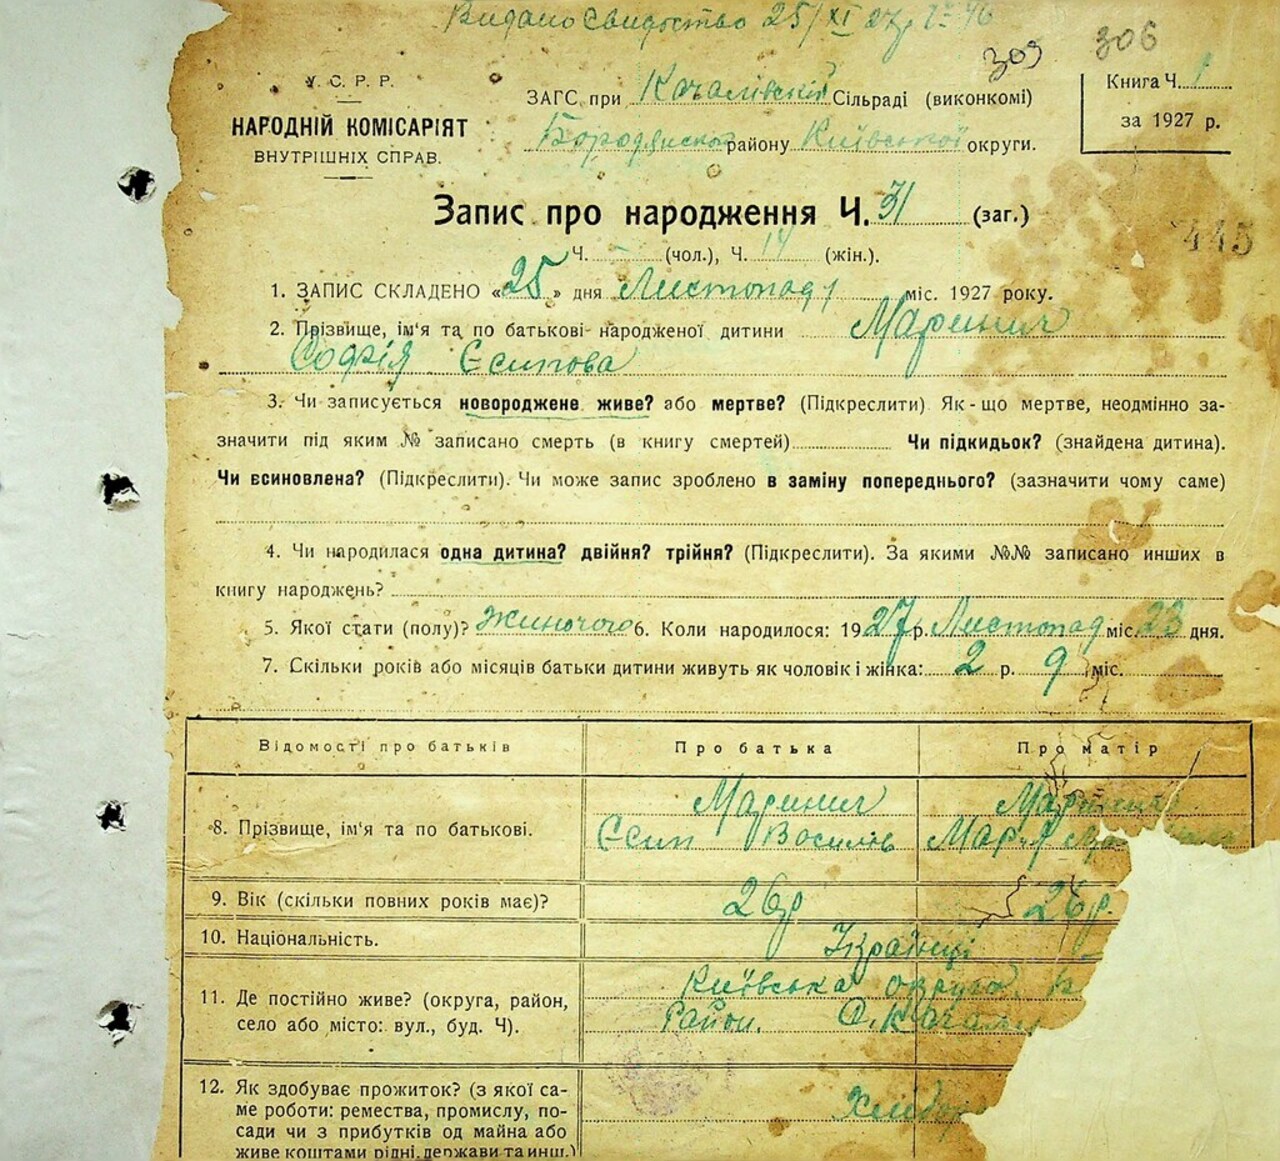 Видано Свидоцтво 25/XI 27р. № 46
309 306
У. С. Р. Р.
НАРОДНІЙ КОМІСАРІЯТ
ВНУТРІШНІХ СПРАВ.
ЗАГС при Качалівскій Сільраді (виконкомі)
Бородянского району Київської округи.
Книга Ч. 1
за 1927 р.
Запис про народження Ч. 31 (заг.)
Ч. – (чол.), Ч. 14 (жін.).
445
1. ЗАПИС СКЛАДЕНО «25» дня Листопад міс. 1927 року.
2. Прізвище, ім'я та по батькові народженої дитини Маринич
Софія Єсипова
3. Чи записується новороджене живе? або мертве? (Підкреслити) Як-що мертве, неодмінно за-
значити під яким № записано смерть (в книгу смертей) Чи підкидьок? (знайдена дитина).
Чи всиновлена? (Підкреслити). Чи може запис зроблено в заміну попереднього? (зазначити чому саме)
4. Чи народилася одна дитина? двійня? трійня? (Підкреслити). За якими №№ записано инших в
книгу народжень?
5. Якої стати (полу)? Жиночого 6. Коли народилося: 1927 р. Листопад міс. 23 дня.
7. Скільки років або місяців батьки дитини живуть як чоловік і жінка: 2 р. 9 міс.
Відомості про батьків Про батька Про матір
8. Прізвище, ім'я та по батькові. Маринич
Єсип Василів Марія
9. Вік (скільки повних років має)? 26р 26р.
10. Національність. Українці
11. Де постійно живе? (округа, район,
село або місто: вул., буд. Ч). Київська округа
Район. С. Качали
12. Як здобуває прожиток? (з якої са-
ме роботи: ремества, промислу, по-
сади чи з прибутків од майна або
живе коштами рідні, держави та инш.)